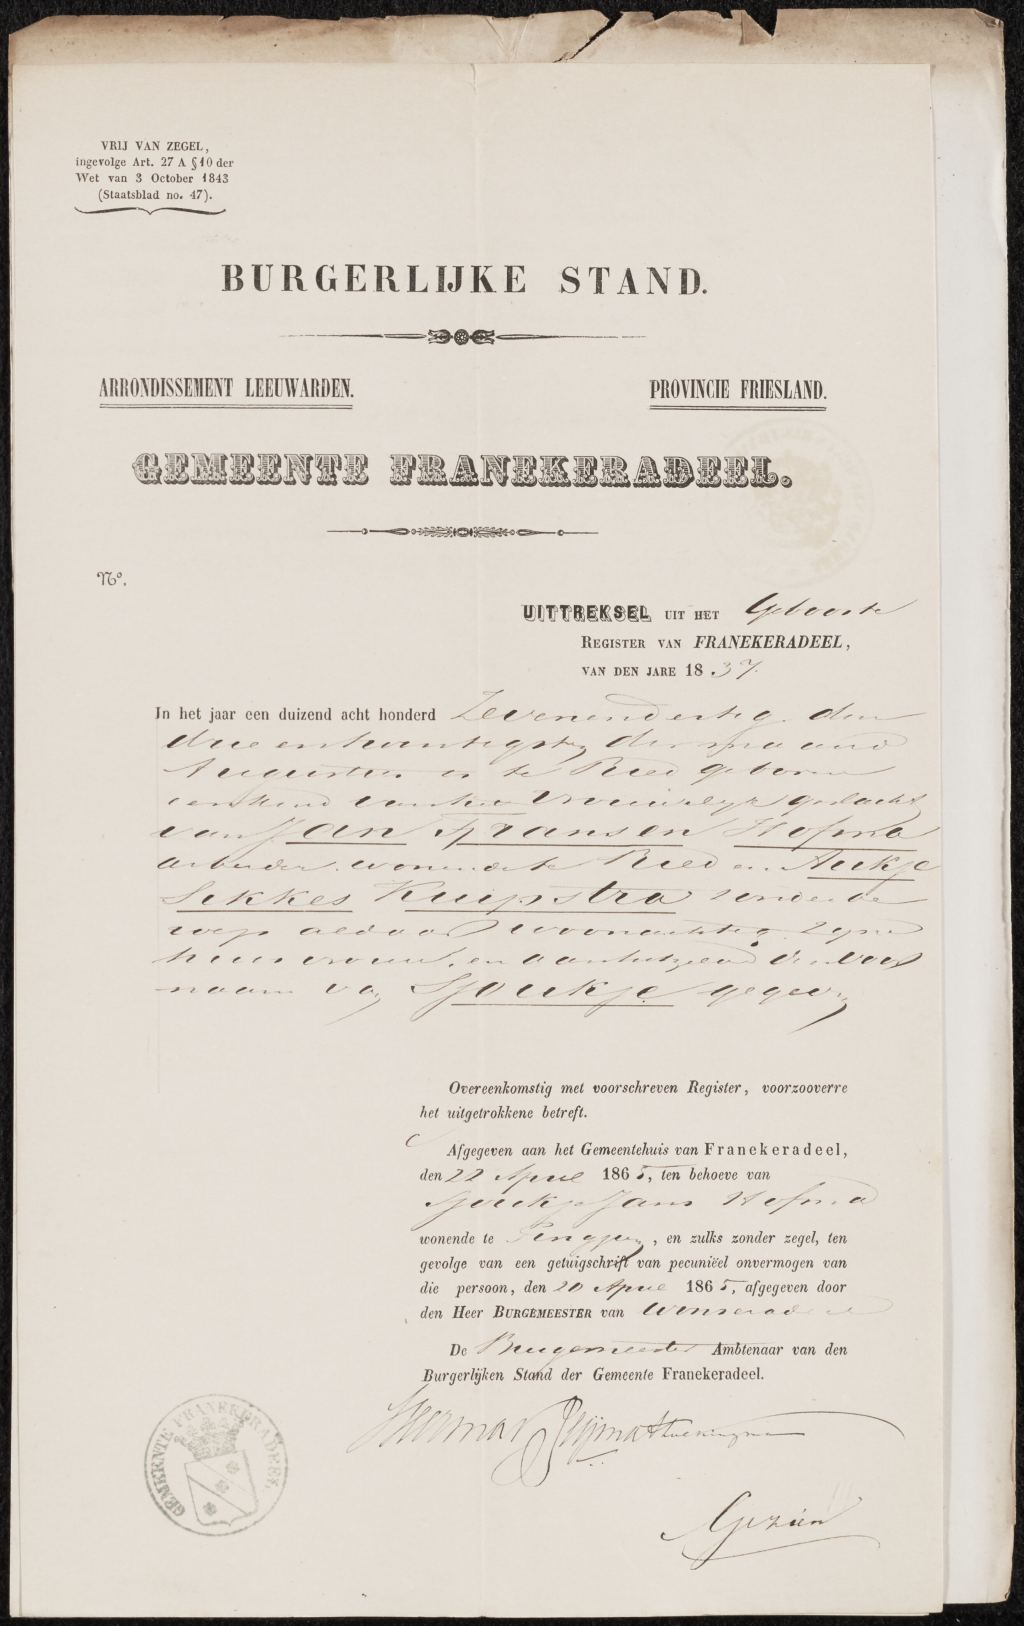 VRIJ VAN ZEGEL,
ingevolge Art. 27 A § 10 der
Wet van 3 October 1843
(Staatsblad no. 47).
BURGERLIJKE STAND.
ARRONDISSEMENT LEEUWARDEN.
PROVINCIE FRIESLAND.
GEMEENTE FRANEKERADEEL.
No.
UITTREKSEL UIT HET Geboorte
REGISTER VAN FRANEKERADEEL,
VAN DEN JARE 18.37.
In het jaar een duizend acht honderd Zevenendertig den
drie en twintigsten der maand
Augustus is te Ried geboren
een kind van het Vrouwelijk geslacht
van Jan Fransen Hofma
arbeider wonende te Ried en Aukje
Sekkes Kuipstra zonder be
roep aldaar woonachtig zijnde
huisvrouw, en aan hetzelve de voor
naam van Sjoukje gegeven
Overeenkomstig met voorschreven Register, voorzooverre
het uitgetrokkene betreft.
Afgegeven aan het Gemeentehuis van Franekeradeel,
den 22 April 1865, ten behoeve van
Sjoukje Jans Hofma
wonende te Pingjum, en zulks zonder zegel, ten
gevolge van een getuigschrift van pecuniëel onvermogen van
die persoon, den 20 April 1865, afgegeven door
den Heer BURGEMEESTER van Wonseradeel
De Burgemeester Ambtenaar van den
Burgerlijken Stand der Gemeente Franekeradeel.
Gezien
GEMEENTE FRANEKERADEEL.